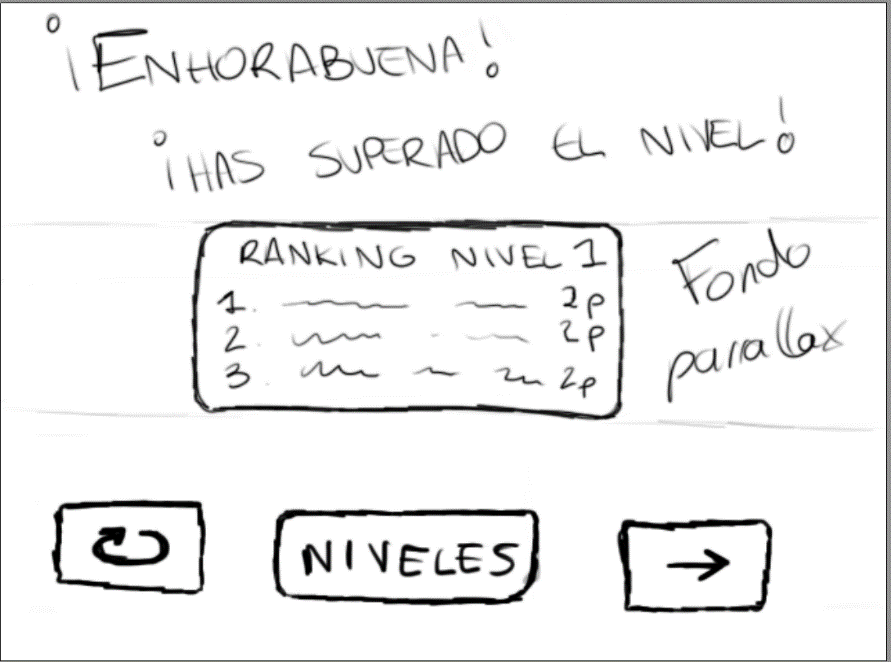 ¡ENHORABUENA!
¡HAS SUPERADO EL NIVEL!
RANKING NIVEL 1
1. 2p
2. 2p
3. 2p
Fondo
parallax
NIVELES